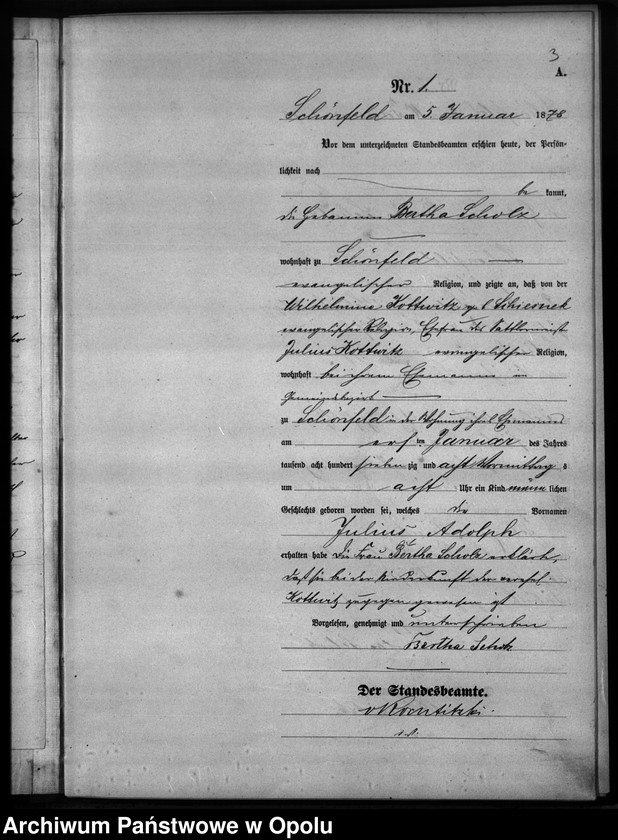 3
A.
Nr. 1.
Schönfeld am 5. Januar 1878
Vor dem unterzeichneten Standesbeamten erschien heute, der Persön-
lichkeit nach
be kannt,
die Hebamme Bertha Scholz
wohnhaft zu Schönfeld
evangelischer Religion, und zeigte an, daß von der
Wilhelmine Kottwitz geb.
evangelischer Religion, Ehefrau des Sattlermeister
Julius Kottwitz evangelischer Religion,
wohnhaft bei ihrem Ehemanne im
Gemeindebezirk
zu Schönfeld in der Wohnung ihres Ehemannes
am ten Januar des Jahres
tausend acht hundert siebenzig und acht Vormittag s
um acht Uhr ein Kind männ lichen
Geschlechts geboren worden sei, welches die Vornamen
Julius Adolph
erhalten habe Die Frau Bertha Scholz erklärte,
daß sie bei der Niederkunft der verehel.
Kottwitz zugegen gewesen ist
Vorgelesen, genehmigt und unterschrieben
Bertha Scholz
Der Standesbeamte.
Archiwum Państwowe w Opolu